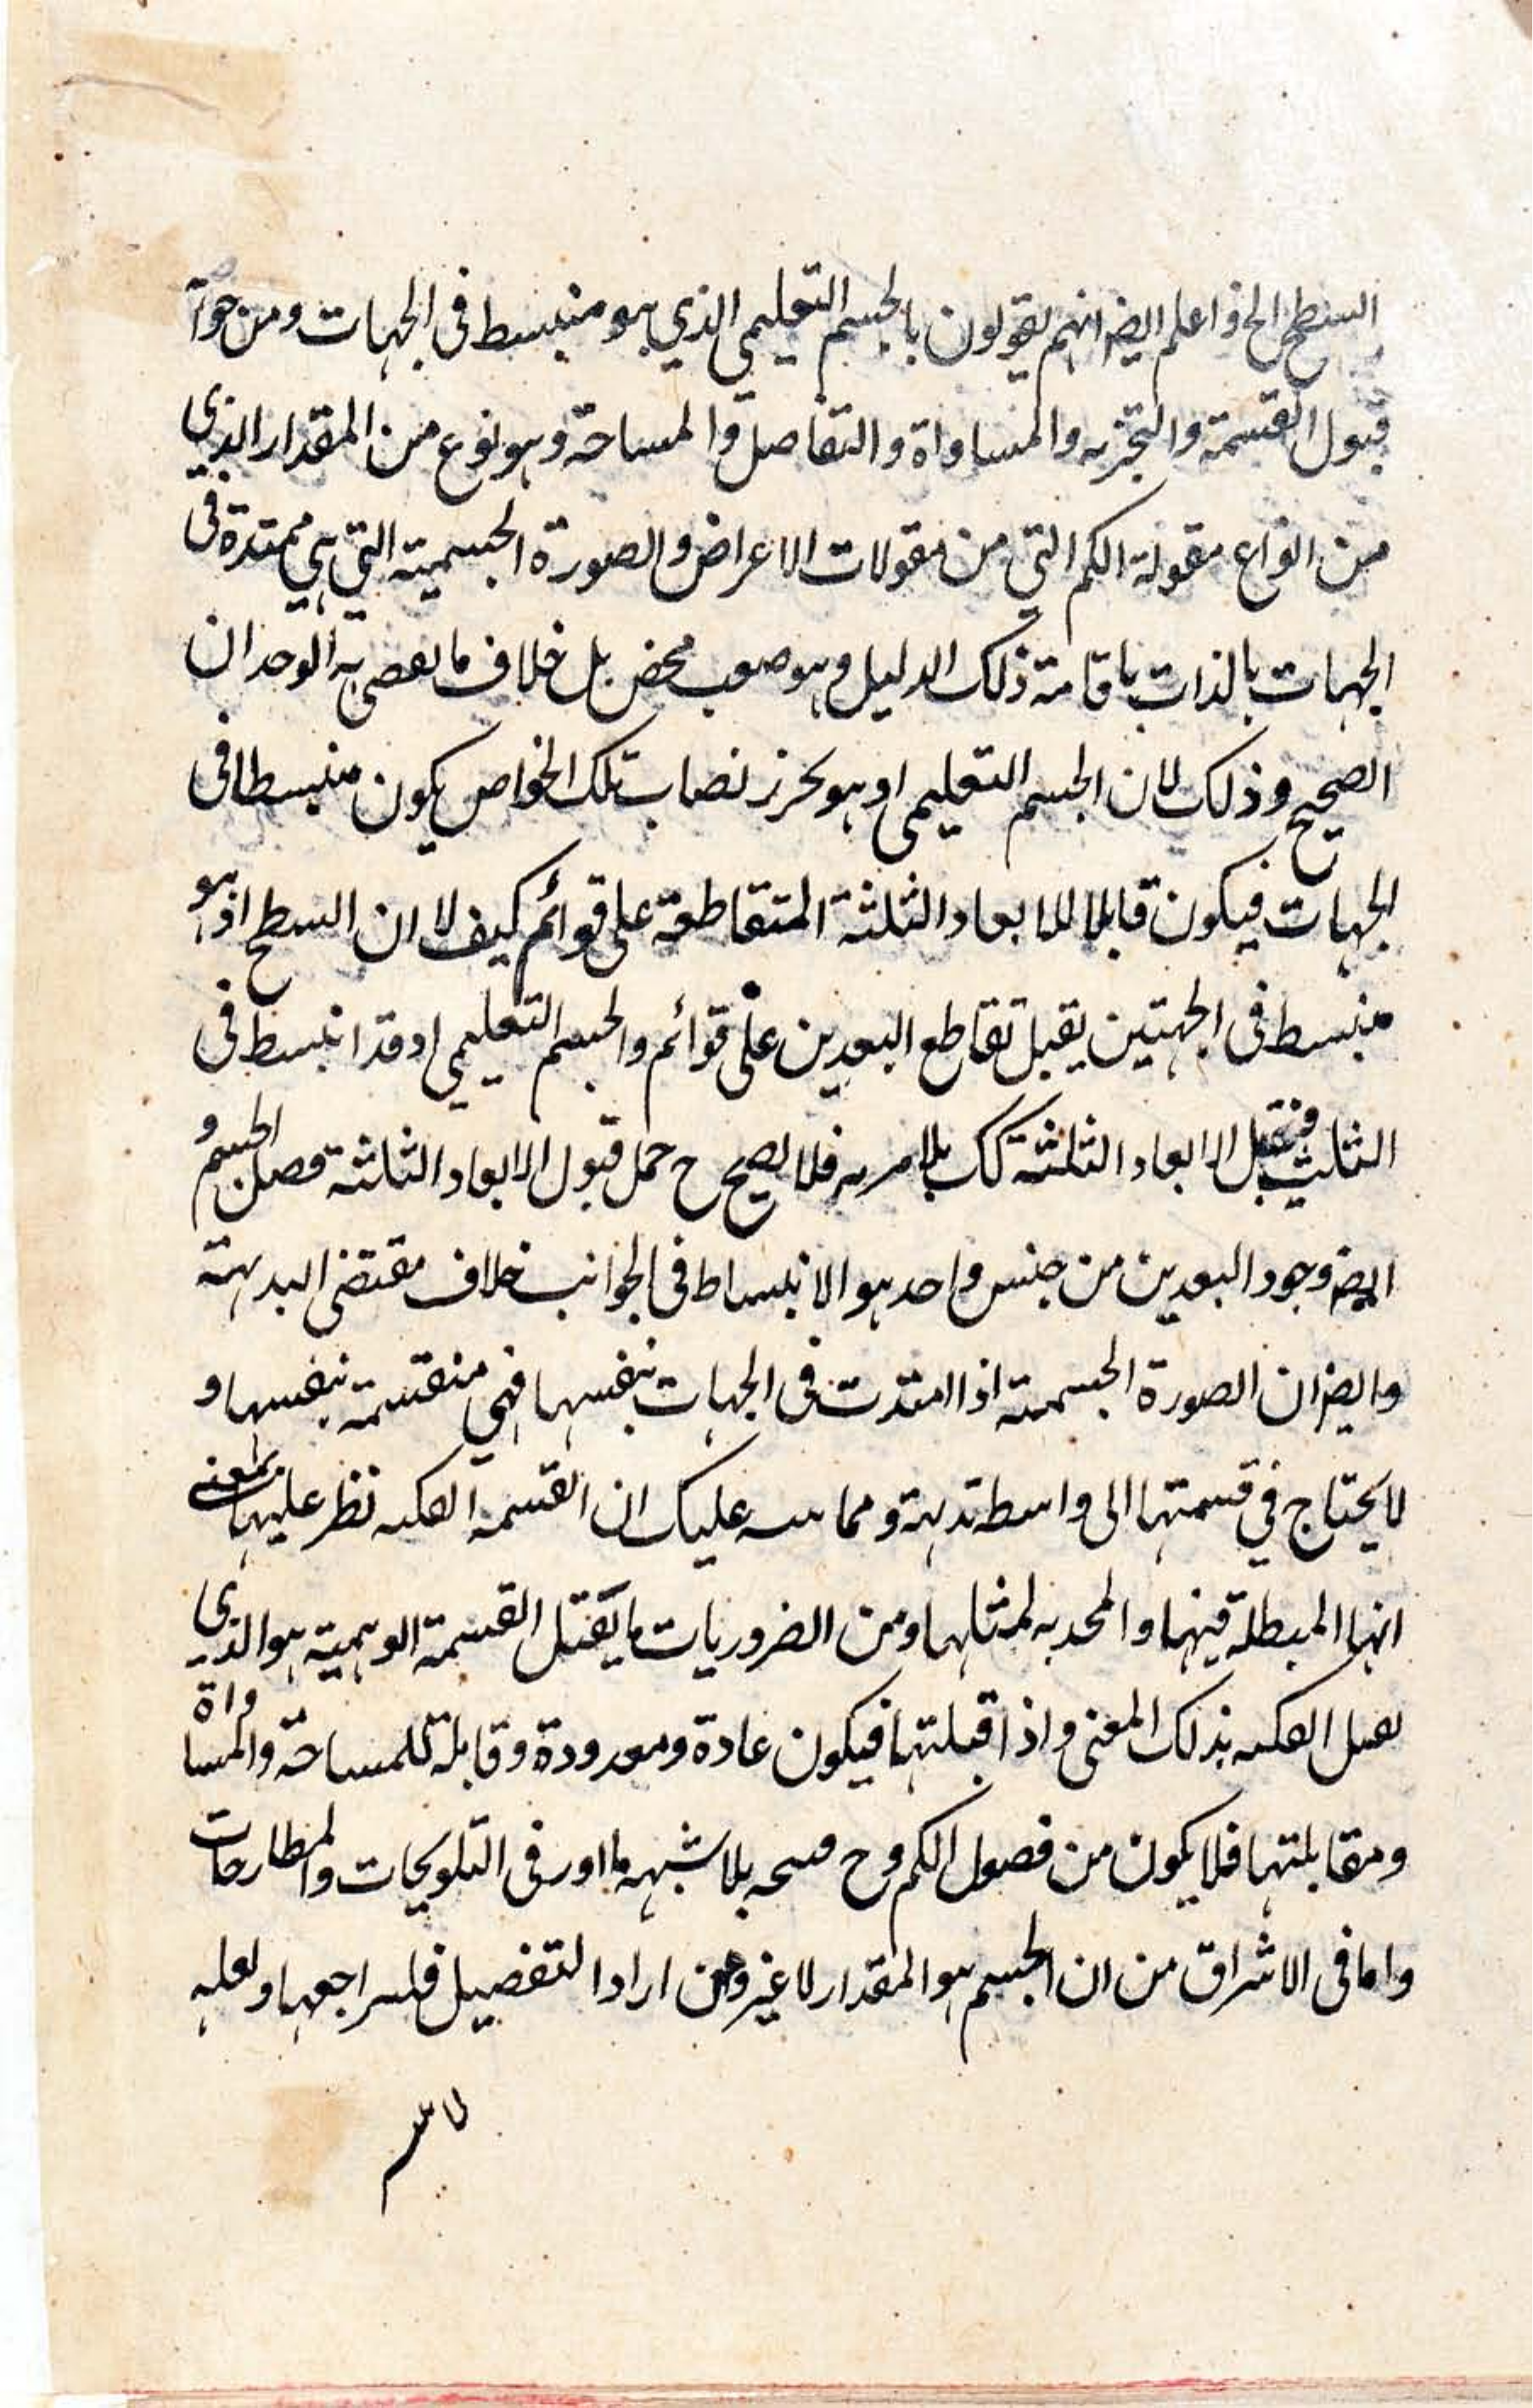 السطح الخ واعلم ايضه انهم يقولون بالجسم التعليمي الذي هو منبسط في الجهات ومن خوا
قبول القسمة والتجزيه والمساواة والتفاضل والمساحة وهو نوع من المقدار الذي
من انواع مقولة الكم التي من مقولات الاعراض والصورة الجسمية التي هي ممتدة في
الجهات بالذات باقامة ذلك الدليل وهو صعب محض بل خلاف ما يقضي به الوجدان
الصحيح وذلك لان الجسم التعليمي اذ هو يحرز نصاب تلك الخواص يكون منبسطا في
الجهات فيكون قابلا للابعاد الثلثة المتقاطعة على قوائم كيف لا ان السطح اذ هو
منبسط في الجهتين يقبل تقاطع البعدين على قوائم والجسم التعليمي اذ قد انبسط في
الثالث فيقبل الابعاد الثلثة كك بلا مريه فلا يصح ح حمل قبول الابعاد الثلثة فصل الجسم و
ايضه وجود البعدين من جنس واحد هو الانبساط في الجوانب خلاف مقتضى البديهة
وايضه ان الصورة الجسمية اذا امتدت في الجهات بنفسها فهي منقسمة بنفسها و
لا يحتاج في قسمتها الى واسطة بديهة ومما عليك ان القسمة الفكيه نظر عليها بمعنى
انها المبطلة فيها والمحدبه لمثالها ومن الضروريات ما يقبل القسمة الوهمية هو الذي
يقبل الفكيه بذلك المعنى واذا قبلتها فيكون عادة ومعدودة وقابلة للمساحة والمساواة
ومقابلتها فلا يكون من فصول الكم وح بلا شبهه ما اور في التلويحات والمطارحات
واما في الاشراق من ان الجسم هو المقدار لا غير ومن اراد التفصيل فليراجعها ولعله